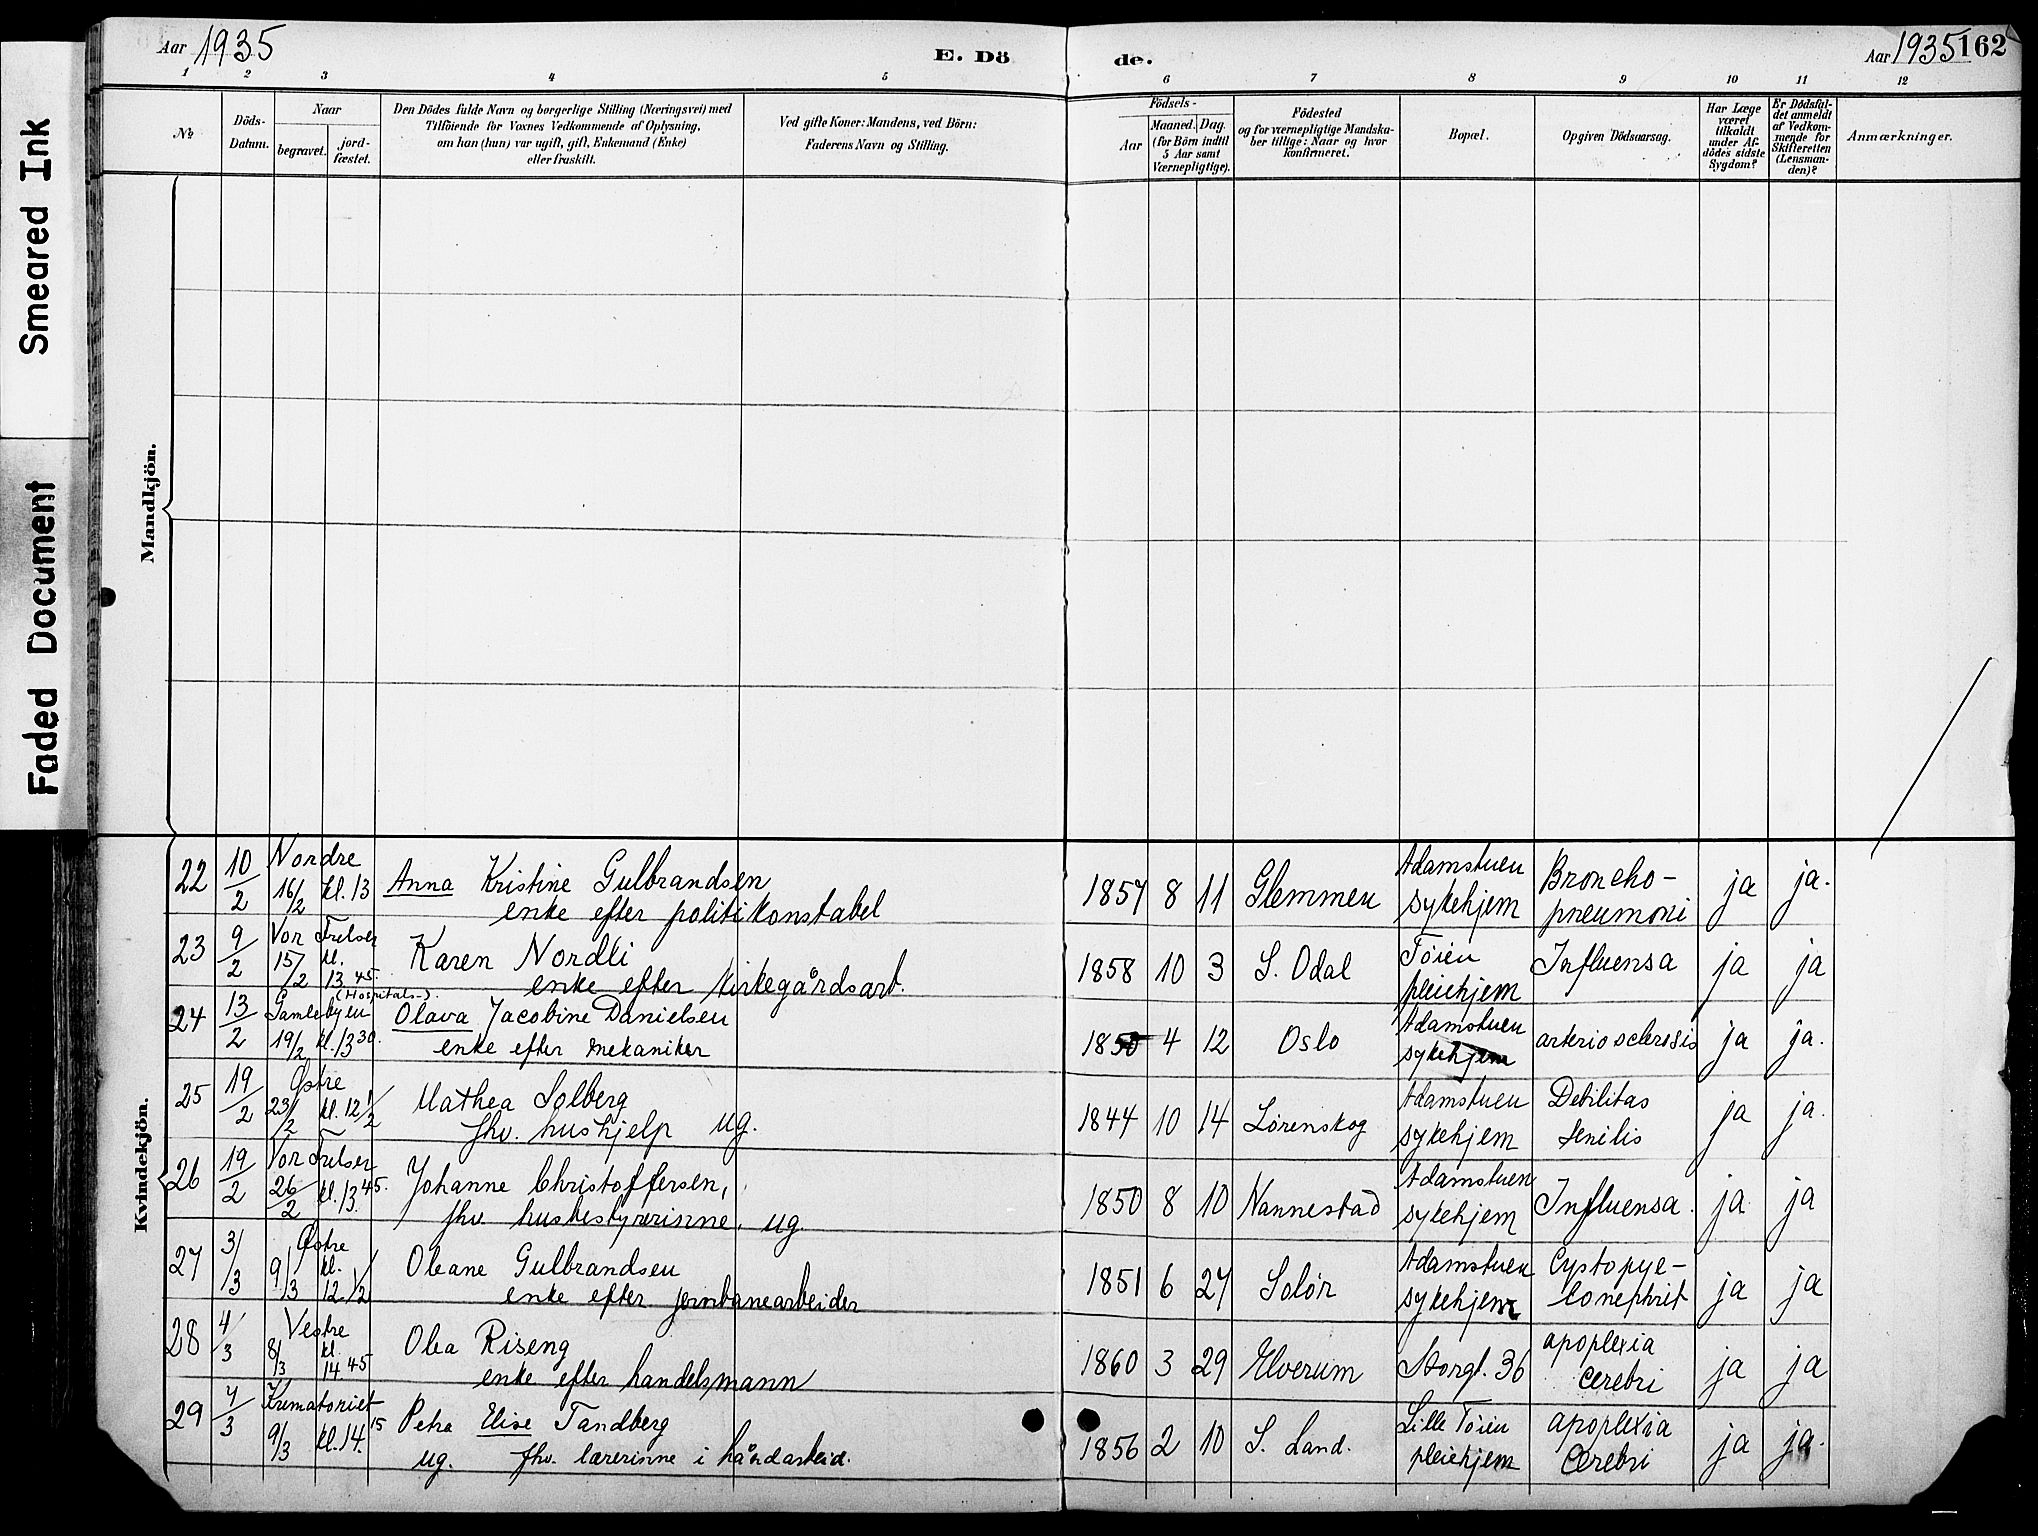 Smeared Ink
Faded Document
Aar 1935
E. Dö
de.
Aar 1935 162
1 2 3 4 5 6 7 8 9 10 11 12
№
Döds-
Datum.
Naar
begravet.
jord-
fæstet.
Den Dödes fulde Navn og borgerlige Stilling (Næringsvei) med
Tilföiende for Voxnes Vedkommende af Oplysning,
om han (hun) var ugift, gift, Enkemand (Enke)
eller fraskilt.
Ved gifte Koner: Mandens, ved Börn:
Faderens Navn og Stilling.
Födsels-
Aar
Maaned.
Dag.
(for Börn indtil
5 Aar samt
Værnepligtige).
Födested
og for værnepligtige Mandska-
ber tillige: Naar og hvor
konfirmeret.
Bopæl.
Opgiven Dödsaarsag.
Har Læge
været
tilkaldt
under Af-
dödes sidste
Sygdom?
Er Dödsfal-
det anmeldt
af Vedkom-
mende for
Skifteretten
(Lensman-
den)?
Anmærkninger.
Mandkjön.
Kvindekjön.
22 10/2 Nordre 16/2 kl. 13 Anna Kristine Gulbrandsen
enke efter politikonstabel
1857 8 11 Glemmen Adamstuen sykehjem Broncho-pneumoni ja ja.
23 9/2 Vor Frelser 15/2 kl. 13 45. Karen Nordli
enke efter kirkegårdsarb.
1858 10 3 S. Odal Tøien pleiehjem Influensa ja ja
24 13/2 Gamlebyen (Hospitals-). 19/2 kl. 13 30. Olava Jacobine Danielsen
enke efter mekaniker
1850 4 12 Oslo Adamstuen sykehjem arteriosclerosis ja ja.
25 19/2 Østre 23/2 kl. 12 1/2 Mathea Solberg
fhv. hushjelp ug.
1844 10 14 Lørenskog Adamstuen sykehjem Debilitas senilis ja ja.
26 19/2 Vor Frelser 26/2 kl. 13 45. Johanne Christoffersen,
fhv. husbestyrerinne, ug.
1850 8 10 Nannestad Adamstuen sykehjem Influensa. ja ja
27 3/3 Østre 9/3 kl. 12 1/2 Oleane Gulbrandsen
enke efter jernbanearbeider
1851 6 27 Solør Adamstuen sykehjem Cystopye-lonephrit ja ja
28 4/3 Vestre 8/3 kl. 14 45 Olea Riseng
enke efter handelsmann
1860 3 29 Elverum Storgt. 36 apoplexia cerebri ja ja
29 7/3 Krematoriet 9/3 kl. 14. 15 Petra Elise Tandberg
ug. fhv. lærerinne i håndarbeid.
1856 2 10 S. Land. Lille Tøien pleiehjem apoplexia cerebri ja ja.